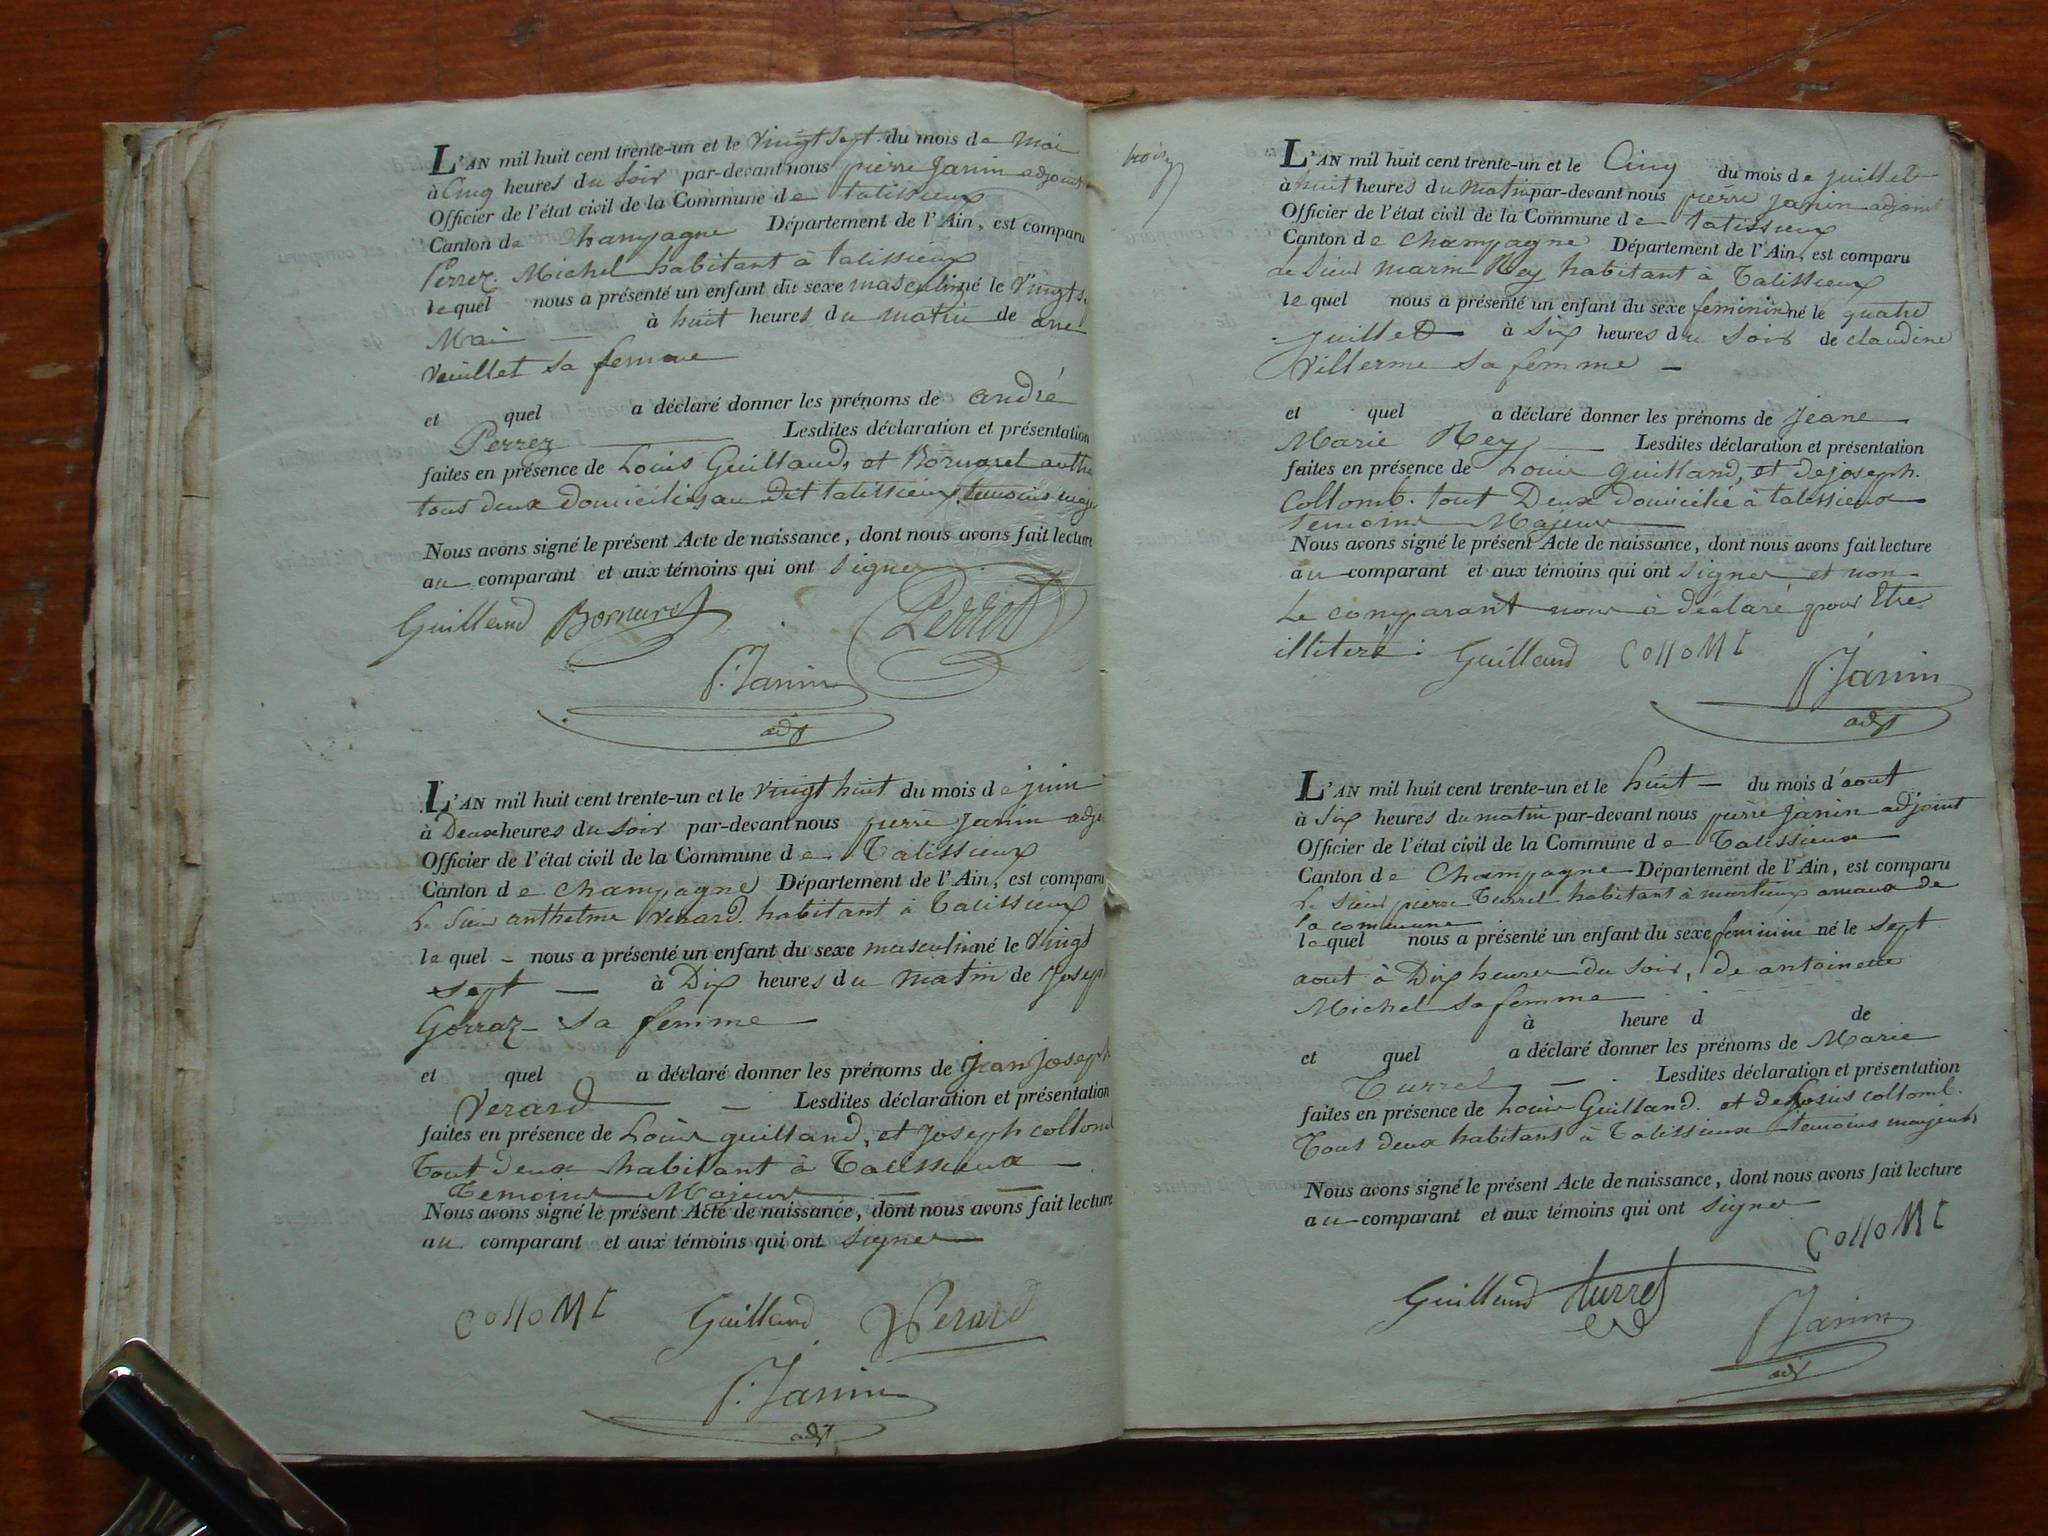 L'AN mil huit cent trente-un et le vingt sept du mois de Mai
à Cinq heures du soir par-devant nous pierre Janin adjoint
Officier de l'état civil de la Commune de talissieux
Canton de Champagne Département de l'Ain, est comparu
Perrez Michel habitant à talissieux
lequel nous a présenté un enfant du sexe masculin né le Vingt
Mai à huit heures du matin de
vuillet sa femme
et quel a déclaré donner les prénoms de andré
Perrez Lesdites déclaration et présentation
faites en présence de Louis Guilland, et Bornarel
tous deux domiciliés au dit talissieux, temoins
Nous avons signé le présent Acte de naissance, dont nous avons fait lecture
au comparant et aux témoins qui ont signer
Guilland Bornarel Perret
P. Janin
adjt
L'AN mil huit cent trente-un et le vingt huit du mois de juin
à Deux heures du soir par-devant nous pierre Janin
Officier de l'état civil de la Commune de Talissieux
Canton de Champagne Département de l'Ain, est comparu
Le Sieur anthelme Verard habitant à Talissieux
lequel nous a présenté un enfant du sexe masculin né le Vingt
sept à Dix heures du matin de Joseph
Gorraz sa femme
et quel a déclaré donner les prénoms de Jean Joseph
Verard Lesdites déclaration et présentation
faites en présence de Louis guilland, et Joseph collomb
Tout deux habitant à Talissieux
Temoins Majeurs
Nous avons signé le présent Acte de naissance, dont nous avons fait lecture
au comparant et aux témoins qui ont signer
Guilland Verard
P. Janin
adjt
L'AN mil huit cent trente-un et le Cinq du mois de juillet
à huit heures du matin par-devant nous pierre Janin adjoint
Officier de l'état civil de la Commune de talissieux
Canton de Champagne Département de l'Ain, est comparu
le Sieur marin Rey habitant à Talissieux
lequel nous a présenté un enfant du sexe feminin né le quatre
Juillet à Six heures du soir de claudine
Villerme sa femme
et quel a déclaré donner les prénoms de Jeane
Marie Rey Lesdites déclaration et présentation
faites en présence de Louis guilland, et de joseph
Collomb. tout Deux domicilié à talissieux
Temoins Majeurs
Nous avons signé le présent Acte de naissance, dont nous avons fait lecture
au comparant et aux témoins qui ont signer et non
Le comparant nous à déclaré pour Etre
illiteré. Guilland
P. Janin
adjt
L'AN mil huit cent trente-un et le huit du mois d'aout
à Six heures du matin par-devant nous pierre Janin adjoint
Officier de l'état civil de la Commune de Talissieux
Canton de Champagne Département de l'Ain, est comparu
Le Sieur pierre Turrel habitant à de
la commune
lequel nous a présenté un enfant du sexe feminin né le sept
aout à Dix heures du soir, de antoinette
Michel sa femme
à heure d de
et quel a déclaré donner les prénoms de Marie
Turrel Lesdites déclaration et présentation
faites en présence de Louis Guilland. et de collomb.
Tous deux habitans à Talissieux temoins majeurs
Nous avons signé le présent Acte de naissance, dont nous avons fait lecture
au comparant et aux témoins qui ont signer
Guilland turrel
P. Janin
adjt